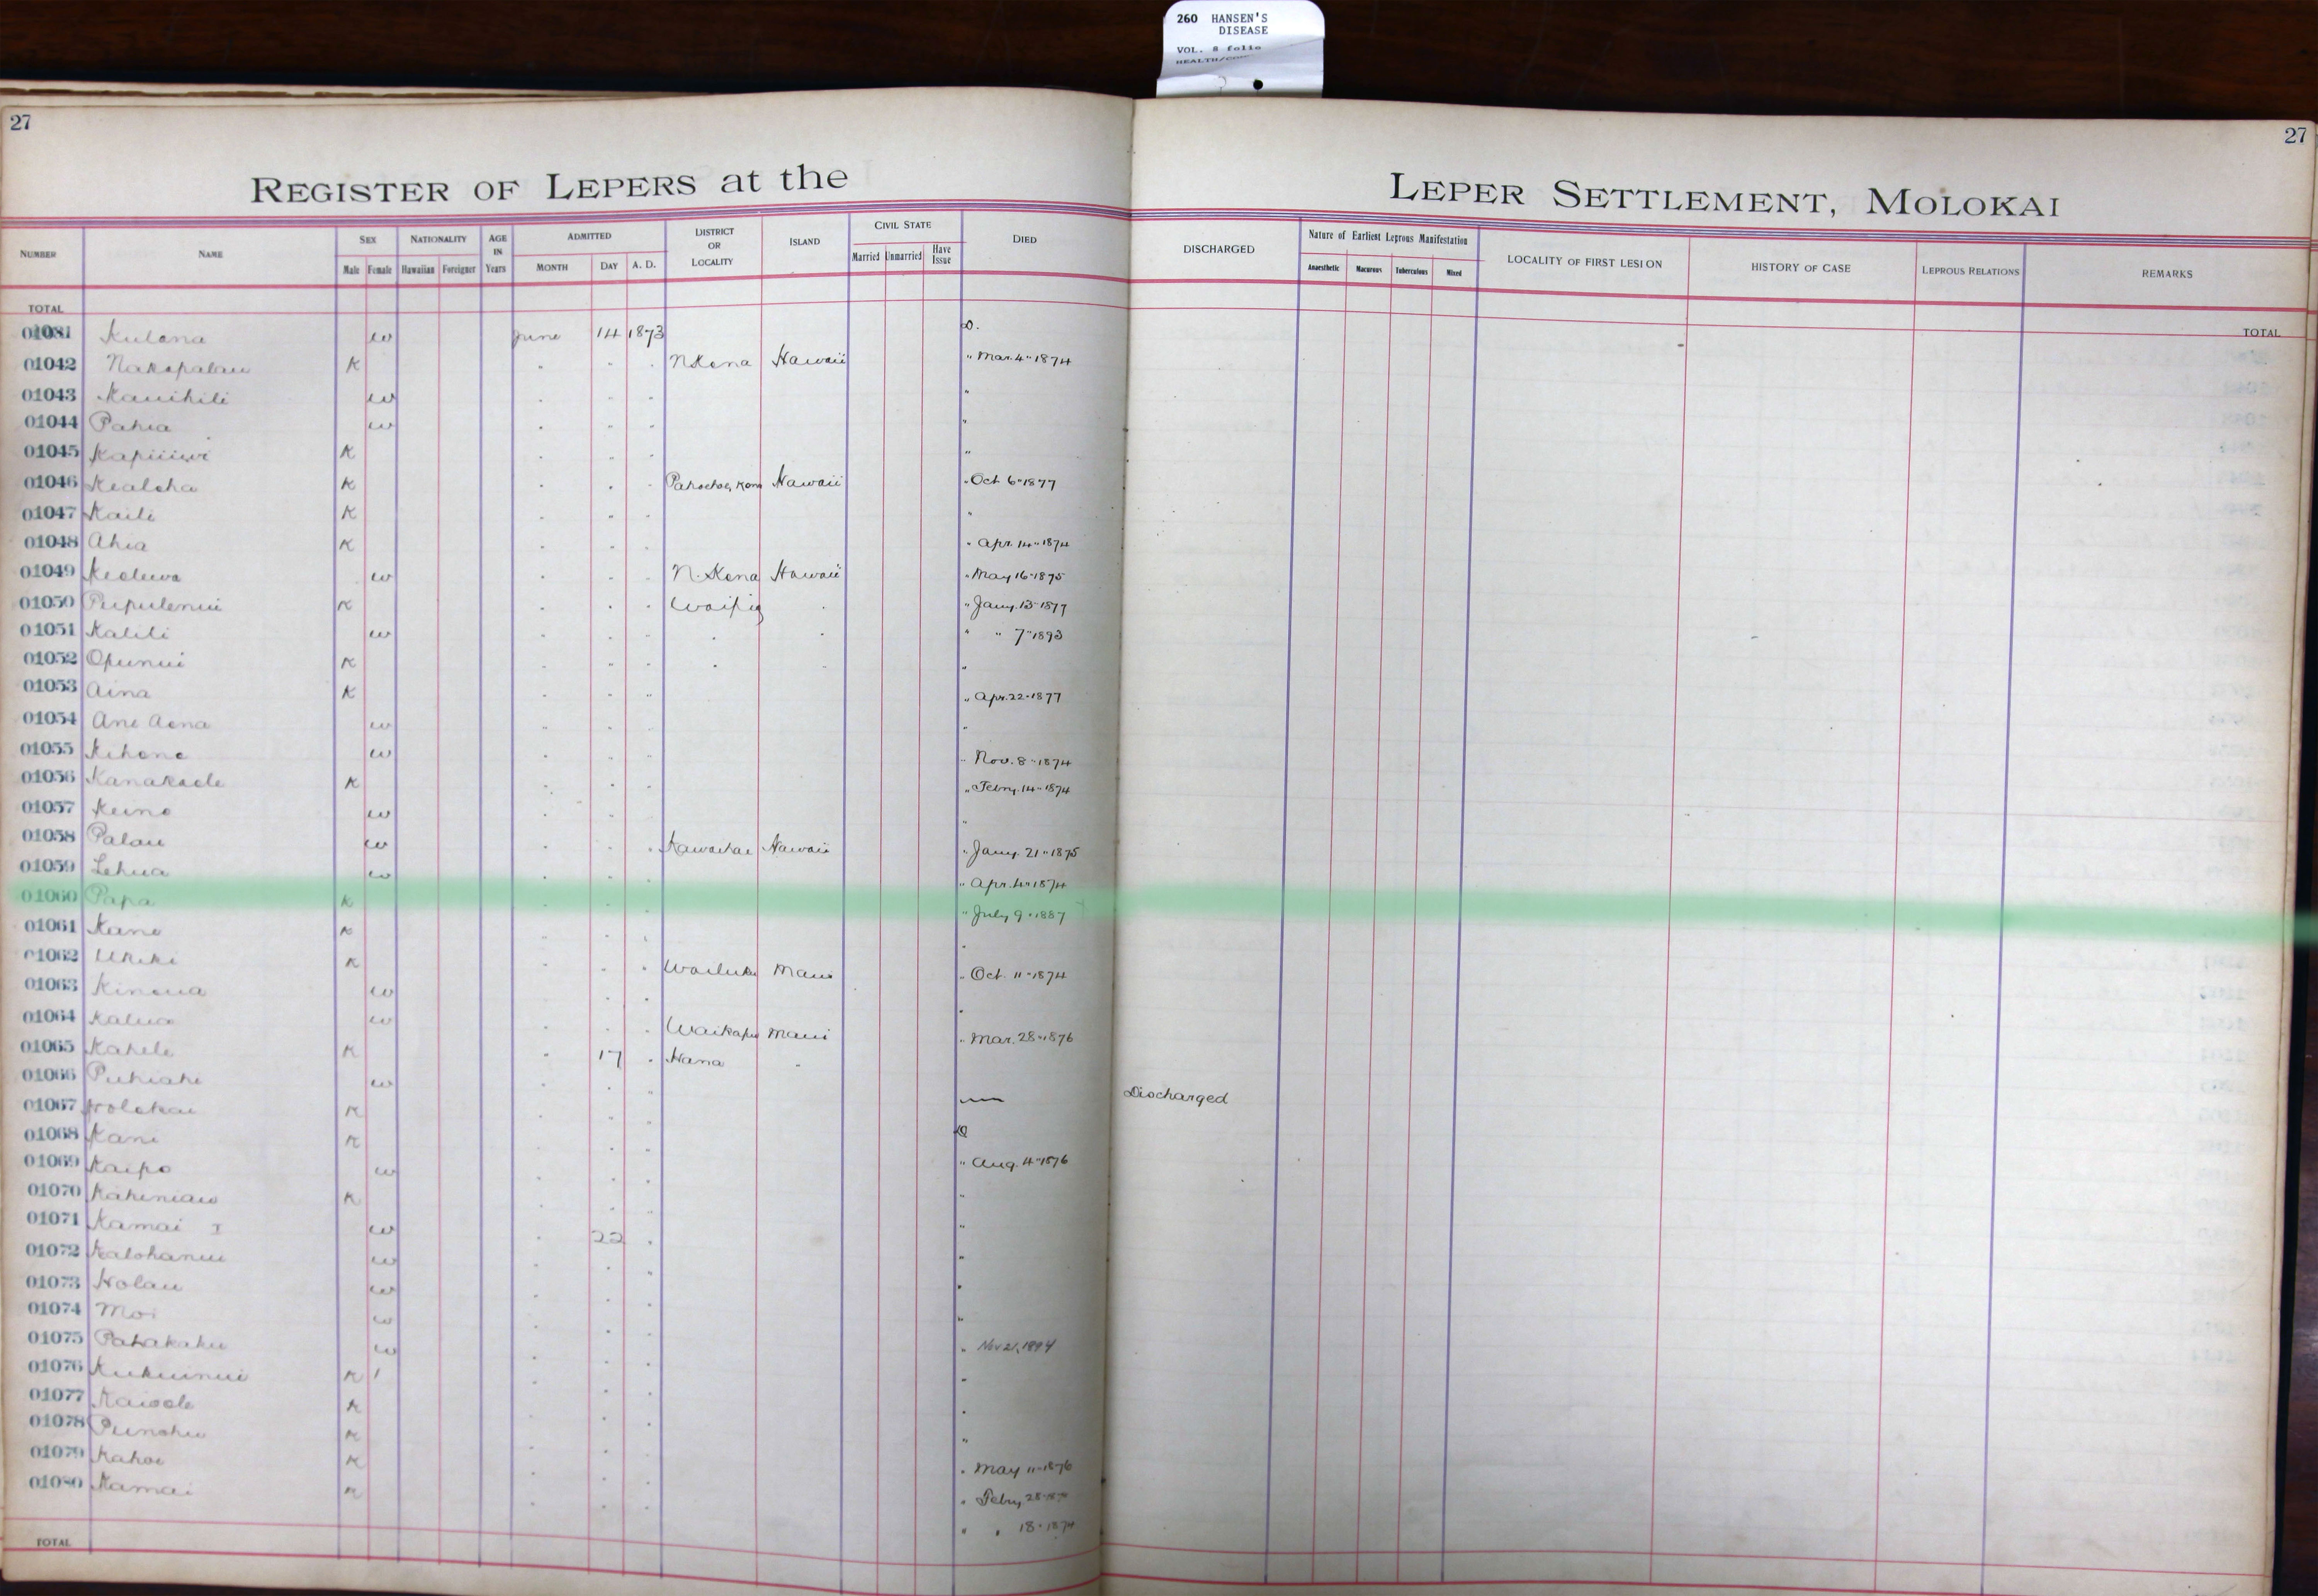 260 HANSEN'S
DISEASE
VOL. 8 folio
27
27
REGISTER OF LEPERS at the LEPER SETTLEMENT, MOLOKAI
NUMBER NAME SEX NATIONALITY AGE IN Years ADMITTED DISTRICT OR LOCALITY ISLAND CIVIL STATE DIED DISCHARGED Nature of Earliest Leprous Manifestation LOCALITY OF FIRST LESION HISTORY OF CASE LEPROUS RELATIONS REMARKS
Male Female Hawaiian Foreigner MONTH DAY A. D. Married Unmarried Have Issue Anaesthetic Macurous Tuberculous Mixed
TOTAL TOTAL
Kulana w June 14 1873 D.
01042 Nakopalau K " " " N Kona Hawaii " Mar. 4" 1874
01043 Kauihili w " " " "
01044 Pahia w " " " "
01045 K " " " "
01046 Kealoha K " " " Pahoehoe, Kona Hawaii " Oct 6" 1877
01047 Kaili K " " " "
01048 Ahia K " " " " Apr. 14" 1874
01049 w " " " N. Kona Hawaii " May 16" 1875
01050 Pupulenui K " " " Waipio " " Jany. 13" 1877
01051 Kalili w " " " " " " " 7" 1893
01052 Opunui K " " " " " "
01053 Aina K " " " " Apr. 22" 1877
01054 Ane Aona w " " " "
01055 Kehone w " " " " Nov. 8" 1874
01056 Kanakaole K " " " " Febry. 14" 1874
01057 Keino w " " " "
01058 Palau w " " " Kawaihae Hawaii " Jany. 21" 1875
01059 Lehua w " " " " Apr. 4" 1874
01060 Papa K " " " " July 9" 1887
01061 Kane K " " " "
01062 Ukeke K " " " Wailuku Maui " Oct. 11" 1874
01063 Kinoua w " " " "
01064 Kalua w " " " Waikapu Maui " Mar. 28" 1876
01065 Kahele K " 17 " Hana "
01066 Puhiahi w " " " — Discharged
01067 Holokai K " " " D
01068 Kani K " " " " Aug. 4" 1876
01069 Kaipo w " " " "
01070 Kaheniau K " " " "
01071 Kamai I w " 22 " "
01072 Kalohanui w " " " "
01073 Holau w " " " "
01074 Moi w " " " " Nov 21, 1894
01075 Pahakaku w " " " "
01076 Kukuinui K " " " "
01077 Kaiaole K " " " "
01078 Punohu K " " " " May 11" 1876
01079 Kahoe K " " " " Febry 28"
01080 Kamai K " " " " " 18" 1874
TOTAL